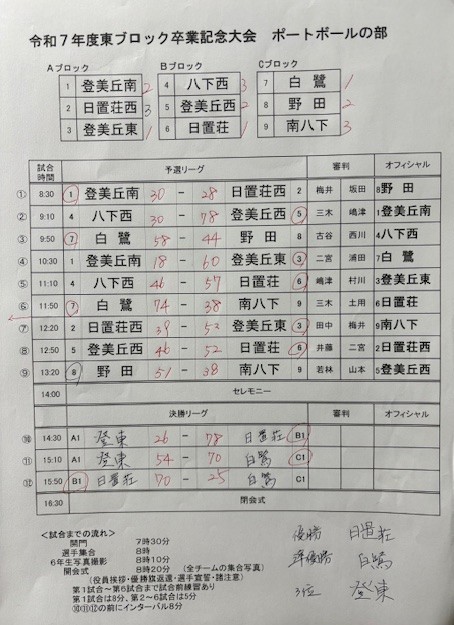 令和７年度東ブロック卒業記念大会　ポートボールの部
Aブロック Bブロック Cブロック
1 登美丘南 2 4 八下西 3 7 白鷺 1
2 日置荘西 3 5 登美丘西 2 8 野田 2
3 登美丘東 1 6 日置荘 1 9 南八下 3
試合時間 予選リーグ 審判 オフィシャル
① 8:30 1 登美丘南 30 - 28 日置荘西 2 梅井 坂田 8 野田
② 9:10 4 八下西 30 - 78 登美丘西 5 三木 嶋津 1 登美丘南
③ 9:50 7 白鷺 58 - 44 野田 8 古谷 西川 4 八下西
④ 10:30 1 登美丘南 18 - 60 登美丘東 3 二宮 浦田 7 白鷺
⑤ 11:10 4 八下西 46 - 57 日置荘 6 嶋津 村川 3 登美丘東
⑥ 11:50 7 白鷺 74 - 38 南八下 9 三木 土用 6 日置荘
⑦ 12:20 2 日置荘西 - 登美丘東 3 田中 梅井 9 南八下
⑧ 12:50 5 登美丘西 46 - 52 日置荘 6 井藤 二宮 2 日置荘西
⑨ 13:20 8 野田 51 - 38 南八下 9 若林 山本 5 登美丘西
14:00 セレモニー
決勝リーグ 審判 オフィシャル
⑩ 14:30 A1 登東 26 - 78 日置荘 B1
⑪ 15:10 A1 登東 54 - 70 白鷺 C1
⑫ 15:50 B1 日置荘 70 - 25 白鷺 C1
16:30 閉会式
＜試合までの流れ＞
開門 7時30分
選手集合 8時
6年生写真撮影 8時10分
開会式 8時20分 （全チームの集合写真）
（役員挨拶・優勝旗返還・選手宣誓・諸注意）
第１試合～第６試合まで試合前練習あり
第１試合は8分、第２～６試合は5分
⑩⑪⑫の前にインターバル8分
優勝 日置荘
準優勝 白鷺
3位 登東